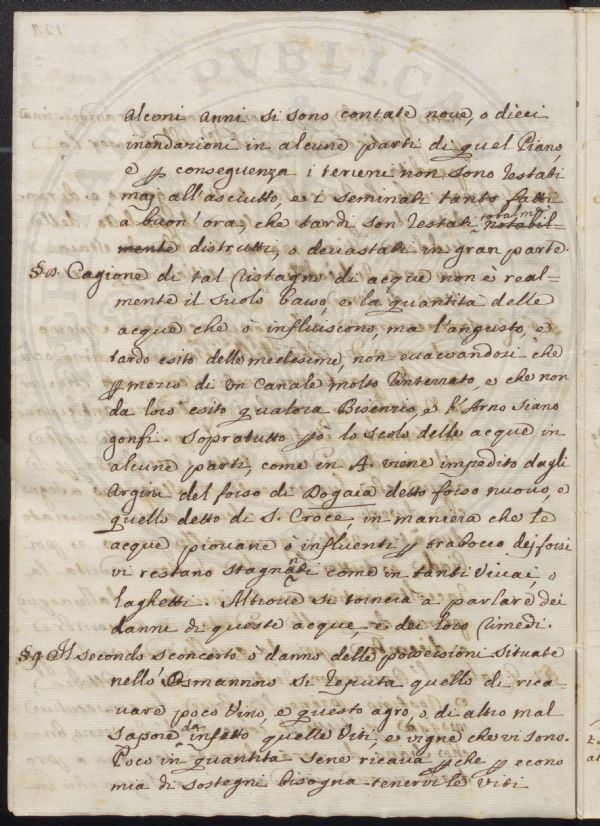 alcuni anni si sono contate nove, o dieci
inondazioni in alcune parti di quel Piano,
e p conseguenza i terreni non sono restati
maj all'asciutto, e i seminati tanto fatti
a buon' ora, che tardi son restati totalmte notabil=
mente distrutti, o devastati in gran parte.
§8 Cagione di tal ristagno di acque non è real=
mente il suolo basso, e la quantità delle
acque che ò influiscono, ma l'angusto, e
tardo esito delle medesime, non evacuandosi che
p mezzo di un Canale molto rinterrato, e che non
da loro esito qualora Bisenzio, e l'Arno siano
gonfi. Sopratutto pò lo scolo delle acque in
alcune parti, come in A. viene impedito dagli
Argini del fosso di Dogaia detto fosso nuovo, e
quello detto di S. Croce, in maniera che le
acque piovane ò influenti p trabocco dej fossi
vi restano stagnanti come in tanti Vivai, o
laghetti. Altrove si tornerà à parlare dei
danni di queste acque, e dei loro rimedi.
§9 Il secondo sconcerto ò danno delle possessioni situate
nell' Osmannoro si reputa quello di rica
vare poco vino, e questo agro, o di altro mal
sapore da infetto quelle Viti, e vigne che vi sono.
Poco in quantità se ne ricava p che p econo
mia di sostegni bisogna tenervi le Viti